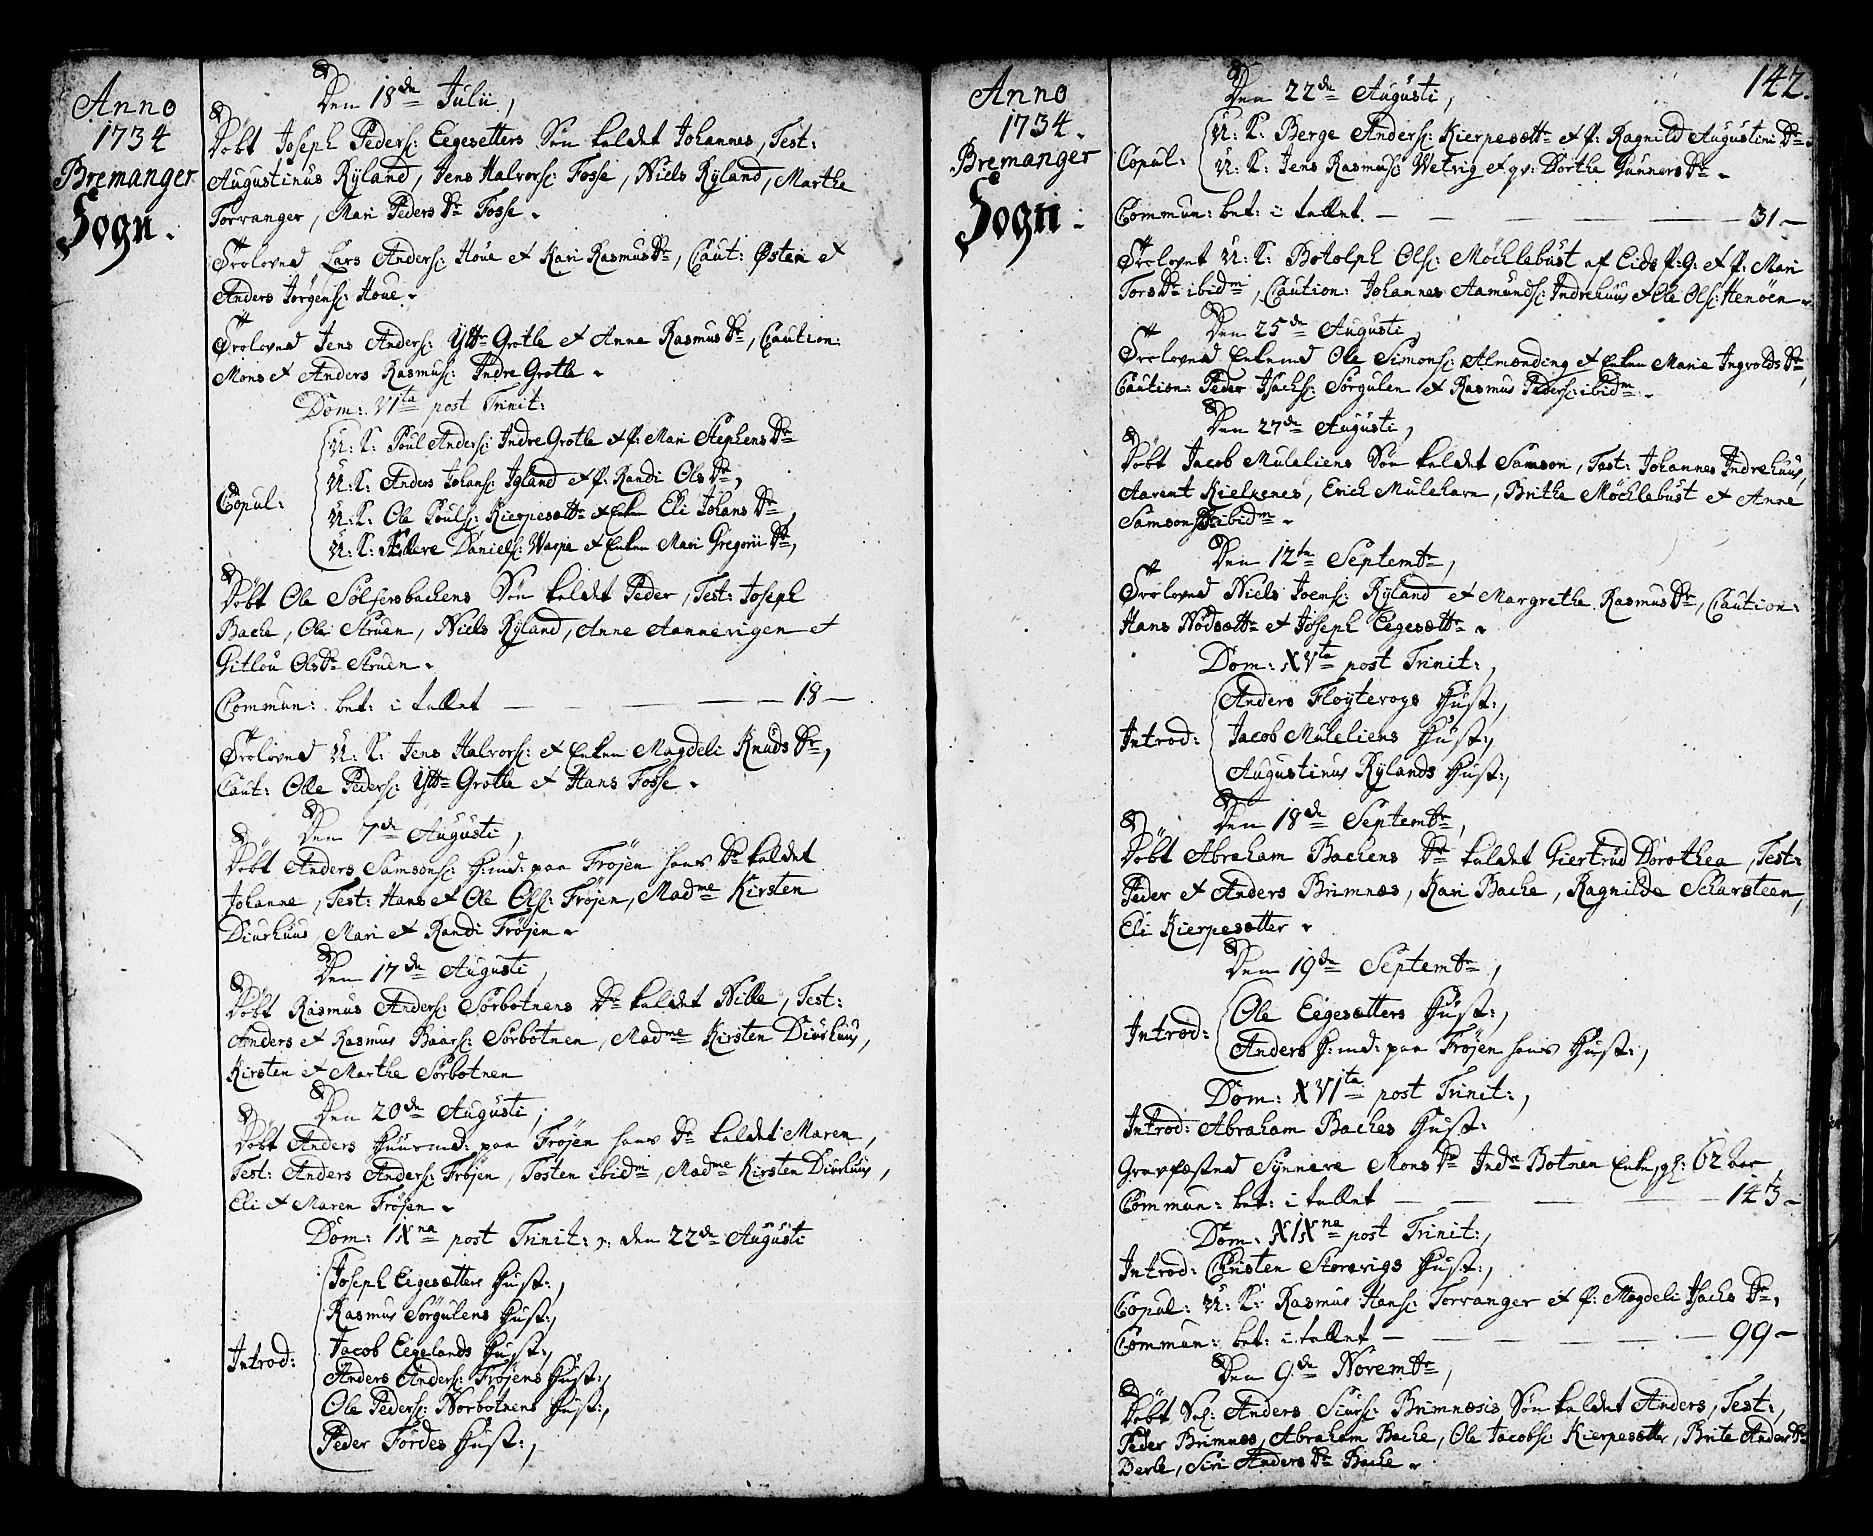 Anno
1734
Bremanger
Sogn.
Den 18de Julii,
Döbt Joseph Peders: Eegesetters Sön kaldet Johannes, Test:
Augustinus Ryland, Jens Halvors: Fosse, Niels Ryland, Marthe
Torranger, Mari Peders Dr Fosse.
Troloved Lars Anders: Houe et Kari Rasmus Dr, Caut: Østen et
Anders Jörgens: Houe.
Troloved Jens Anders: Ytte Grotle et Anne Rasmus Dr, Caution:
Mons et Anders Rasmus: Indre Grotle.
Dom: VIta post Trinit:
U: K: Poul Anders: Indre Grotle et P: Mari Stephens Dr
U: K: Anders Johans: Igland et P: Randi Ols Dr,
Copul:
U: K: Ole Pouls: Kierpesætte et Enken Eli Johans Dr,
U: K: Daniels: Varpe et Enken Mari Gregorii Dr,
Döbt Ole Sölfersbachens Sön kaldet Peder, Test: Joseph
Bache, Ole Struen, Niels Ryland, Anne Aannevigen et
Gitlou Ols Dr Struen.
Commun: bet: i tallet — — — — 18 —
Troloved U: K: Jens Halvors: et Enken Magdeli Knuds Dr,
Caut: Olle Peders: Ytte Grotle et Hans Fosse.
Den 7de Augusti,
Döbt Anders Samsons: H:md: paa Fröjen hans Dr kaldet
Johanne, Test: Hans et Ole Ols: Fröjen, Madme Kirsten
Diurhuus, Mari et Randi Fröjen.
Den 17de Augusti,
Döbt Rasmus Anders: Sörbotnens Dr kaldet Nille, Test:
Anders et Rasmus Baars: Sörbotnen, Madme Kirsten Diurhuus,
Kirsten et Marthe Sörbotnen
Den 20de Augusti,
Döbt Anders Huusmd: paa Fröjen hans Dr kaldet Maren,
Test: Anders Anders: Fröjen, Tosten ibidm, Madme Kirsten Diurhuus,
Eli et Maren Fröjen.
Dom: IXna post Trinit: den 22de Augusti
Joseph Eegesætters Hust:,
Rasmus Sörgulens Hust:,
Introd:
Jacob Eegelands Hust:,
Anders Anders: Fröjens Hust:,
Ole Peders: Norbotnens Hust:,
Peder Fördes Hust:,
142.
Anno
1734.
Bremanger
Sogn.
Den 22de Augusti,
U: K: Berge Anders: Kierpesætte et P: Ragnild Augustini Dr.
Copul:
U: K: Jens Rasmus: Vetvig et qv: Dorthe Gunners Dr.
Commun: bet: i tallet. — — — — — 31 —
Trolovet U: K: Botolph Ols: Möchlebust af Eids P:G: et P: Mari
Tors Dr ibidm, Caution: Johannes Aamunds: Indrehuus et Ole Ols: Henöen.
Den 25de Augusti,
Troloved Enkemd Ole Simons: Almending et Enken Marie Ingvolds Dr,
Caution: Peder Isachs: Sörgulen et Rasmus Peders: ibidm.
Den 27de Augusti,
Döbt Jacob Muleliens Sön kaldet Samson, Test: Johannes Indrehuus,
Aarent Kielkenes, Erich Mulehavn, Brithe Möchlebust et Anne
Samsons Dr ibidm.
Den 12te Septembr,
Troloved Niels Joens: Ryland et Margrethe Rasmus Dr, Caution:
Hans Nödsætte et Joseph Eegesætte.
Dom: XVta post Trinit:,
Anders Flöyterogs Hust:,
Introd: Jacob Muleliens Hust:,
Augustinus Rylands Hust:,
Den 18de Septembr,
Döbt Abraham Bachens Dr kaldet Giertrud Dorothea, Test:
Peder et Anders Brimnæs, Kari Bache, Ragnilda Scharsteen,
Eli Kierpesætter.
Den 19de Septembr,
Ole Eegesætters Hust:,
Introd:
Anders H:md: paa Fröjen hans Hust:,
Dom: XVIta post Trinit:,
Introd: Abraham Baches Hust:
Gravfæsted Synneve Mons Dr Indre Botnen Enke, 62 aar,
Commun: bet: i tallet — — — — 143 —
Dom: XIXna post Trinit:,
Introd: Christen Storevigs Hust:,
Copul: U: K: Rasmus Hans: Torranger et P: Magdeli Isachs Dr,
Commun: bet: i tallet — — — — 99 —
Den 9de Novembr,
Döbt Anders Siurs: Brimnæsis Sön kaldet Anders, Test:,
Peder Brimnes, Abraham Bache, Ole Jacobs: Kierpesætter, Brite Anders Dr
Derle, Siri Anders Dr Bache.